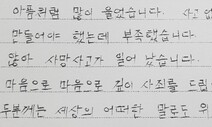 아픔처럼 많이 울었습니다. 사고 없
만들어야 했는데 부족했습니다.
않아 사망사고가 일어 났습니다.
마음으로 마음으로 깊이 사죄를 드립니
두분께는 세상의 어떠한 말로도 위